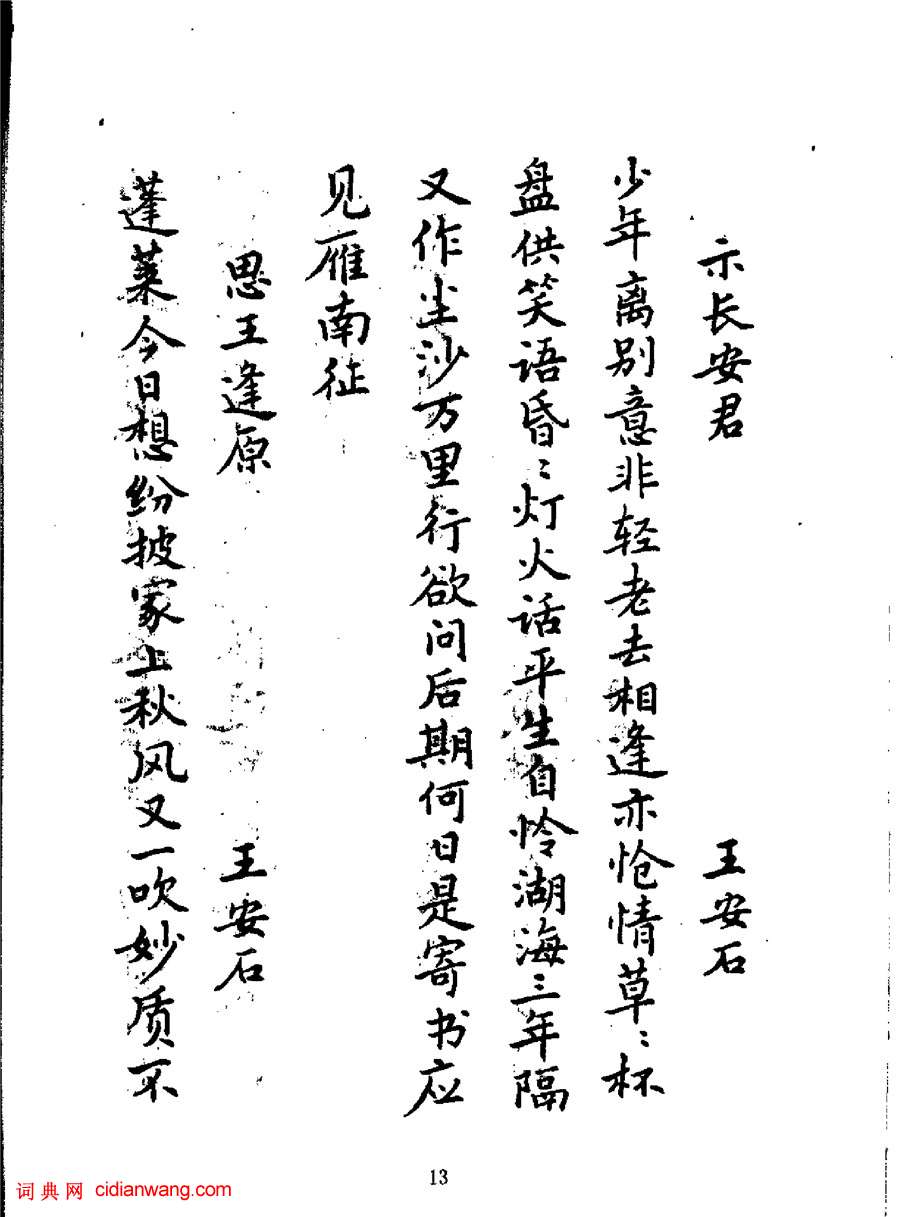 示长安君 王安石
少年离别意非轻老去相逢亦怆情草〻杯
盘供笑语昏〻灯火话平生自怜湖海三年隔
又作尘沙万里行欲问后期何日是寄书应
见雁南征
思王逢原 王安石
蓬莱今日想纷披冢上秋风又一吹妙质不
13
词典网 cidianwang.com